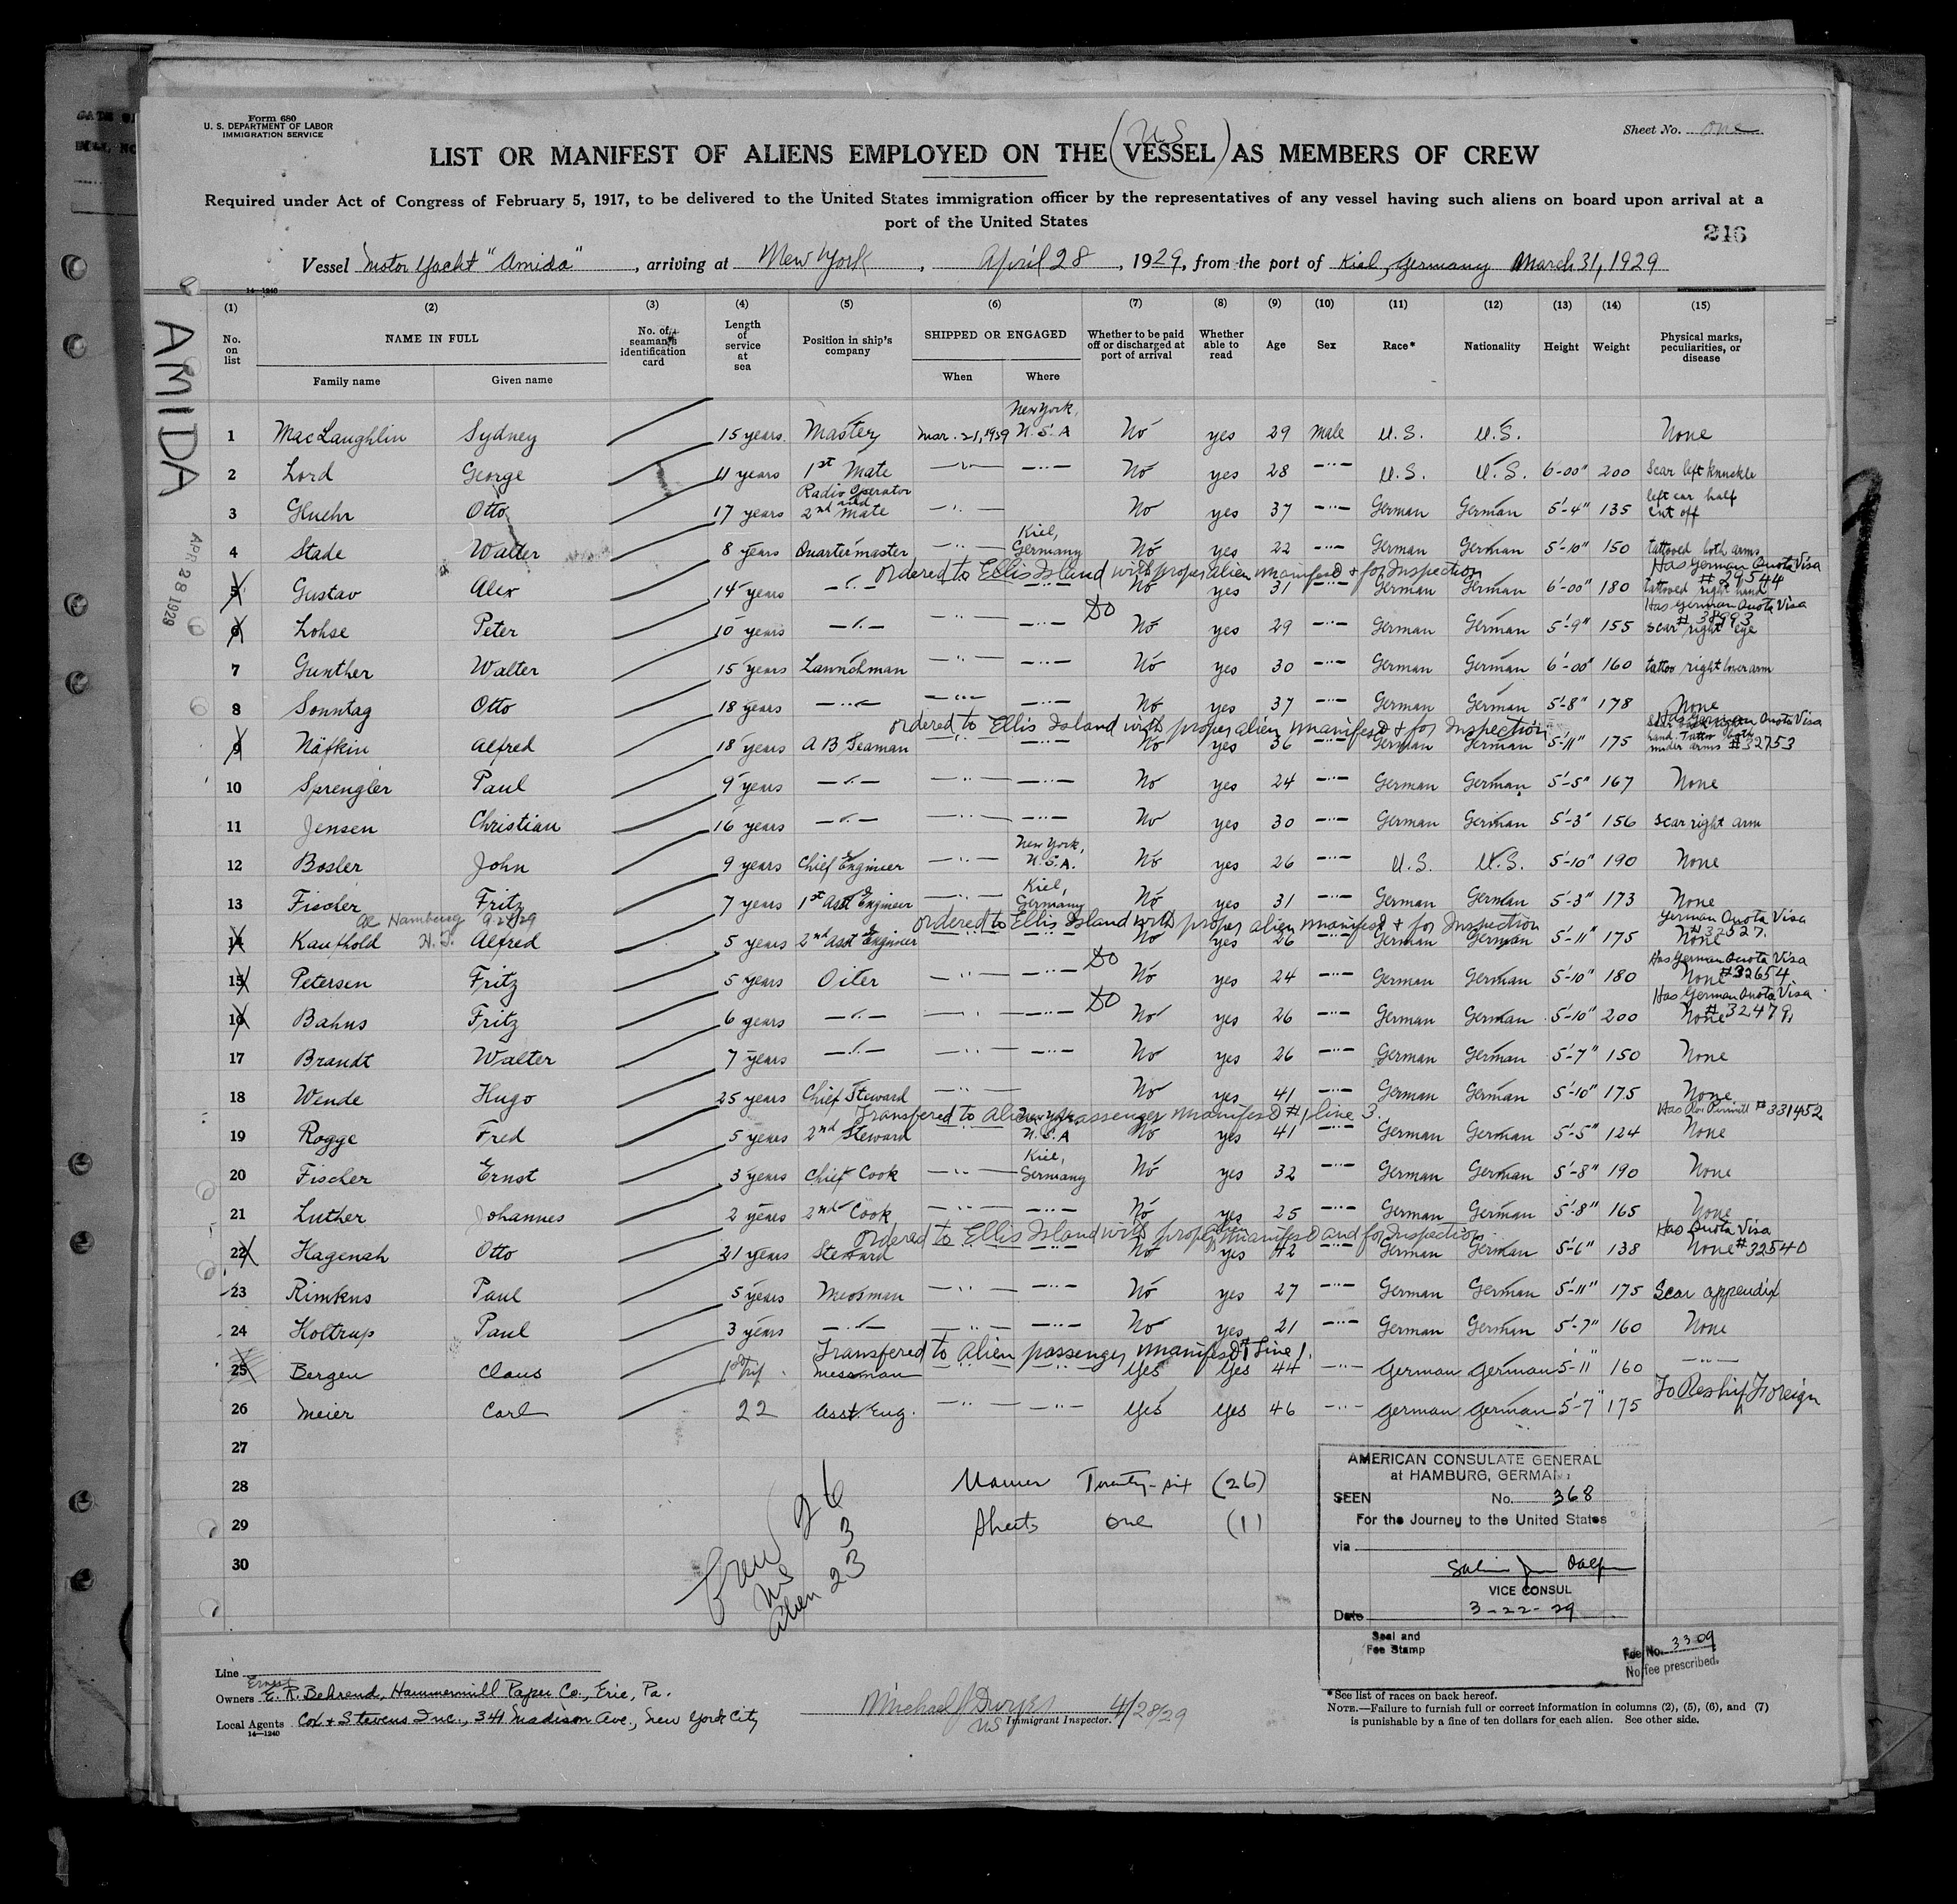 Form 680
U. S. DEPARTMENT OF LABOR
IMMIGRATION SERVICE
Sheet No. one
US
LIST OR MANIFEST OF ALIENS EMPLOYED ON THE (VESSEL) AS MEMBERS OF CREW
Required under Act of Congress of February 5, 1917, to be delivered to the United States immigration officer by the representatives of any vessel having such aliens on board upon arrival at a
port of the United States
216
Vessel Motor Yacht "Amida", arriving at New York, April 28, 1929, from the port of Kiel, Germany March 31, 1929
14-1240
AMIDA
APR 28 1929
(1) (2) (3) (4) (5) (6) (7) (8) (9) (10) (11) (12) (13) (14) (15)
No. on list NAME IN FULL Family name Given name No. of seaman's identification card Length of service at sea Position in ship's company SHIPPED OR ENGAGED When Where Whether to be paid off or discharged at port of arrival Whether able to read Age Sex Race* Nationality Height Weight Physical marks, peculiarities, or disease
1 MacLaughlin Sydney 15 years Master Mar. 21, 1929 New York, U.S.A No yes 29 male U.S. U.S. None
2 Lord George 11 years 1st Mate —"— —"— No yes 28 —"— U.S. U.S. 6'-00" 200 Scar left knuckle
3 Gluehr Otto 17 years Radio Operator and 2nd Mate —"— No yes 37 —"— German German 5'-4" 135 left ear half cut off
4 Stade Walter 8 years Quartermaster —"— Kiel, Germany No yes 22 —"— German German 5'-10" 150 tattoved both arms
ordered to Ellis Island with proper alien manifest + for Inspection Has German Quota Visa # 29544
5 Gustav Alex 14 years —"— —"— No yes 31 —"— German German 6'-00" 180 tattoved right hand
Do Has German Quota Visa # 38993
6 Lohse Peter 10 years —"— —"— —"— No yes 29 —"— German German 5'-9" 155 scar right eye
7 Gunther Walter 15 years Launchman —"— —"— No yes 30 —"— German German 6'-00" 160 tattoo right lower arm
8 Sonntag Otto 18 years —"— —"— —"— No yes 37 —"— German German 5'-8" 178 None
ordered to Ellis Island with proper alien manifest + for Inspection Has German Quota Visa
9 Näfkin Alfred 18 years A B Seaman —"— —"— No yes 36 —"— German German 5'-11" 175 hand. Tattoo both under arms #32753
10 Sprengler Paul 9 years —"— —"— —"— No yes 24 —"— German German 5'-5" 167 None
11 Jensen Christian 16 years —"— —"— —"— No yes 30 —"— German German 5'-3" 156 scar right arm
12 Bosler John 9 years Chief Engineer —"— New York, U.S.A. No yes 26 —"— U.S. U.S. 5'-10" 190 None
13 Fischer Fritz 7 years 1st Asst Engineer —"— Kiel, Germany No yes 31 —"— German German 5'-3" 173 None
Hamburg 9.24/29 ordered to Ellis Island with proper alien manifest + for Inspection German Quota Visa # 32527.
14 Kauthold Alfred 5 years 2nd Asst Engineer —"— —"— No yes 26 —"— German German 5'-11" 175 None
Do Has German Quota Visa
15 Petersen Fritz 5 years Oiler —"— —"— No yes 24 —"— German German 5'-10" 180 None #32654
Do Has German Quota Visa
16 Bahns Fritz 6 years —"— —"— —"— No yes 26 —"— German German 5'-10" 200 None # 32479,
17 Brandt Walter 7 years —"— —"— —"— No yes 26 —"— German German 5'-7" 150 None
18 Wende Hugo 25 years Chief Steward —"— No yes 41 —"— German German 5'-10" 175 None
Transfered to alien passenger manifest #1 line 3. #331452
19 Rogge Fred 5 years 2nd Steward —"— New York U.S.A No yes 41 —"— German German 5'-5" 124 None
20 Fischer Ernst 3 years Chief Cook —"— Kiel, Germany No yes 32 —"— German German 5'-8" 190 None
21 Luther Johannes 2 years 2nd Cook —"— —"— No yes 25 —"— German German 5'-8" 165 None
ordered to Ellis Island with proper alien manifest and for Inspection Has Quota Visa
22 Hagenah Otto 21 years Steward —"— —"— No yes 42 —"— German German 5'-6" 138 None #32540
23 Rimkus Paul 5 years Messman —"— —"— No yes 27 —"— German German 5'-11" 175 Scar appendix
24 Holtrup Paul 3 years —"— —"— —"— No yes 21 —"— German German 5'-7" 160 None
Transfered to alien passenger manifest Line 1.
25 Bergen Claus 1st Trip messman —"— —"— Yes Yes 44 —"— German German 5'-11" 160 —"—
To Reship Foreign
26 Meier Carl 22 Asst. Eng. —"— —"— Yes Yes 46 —"— German German 5'-7" 175
27
28 Names Twenty-six (26)
29 Sheets one (1)
30
Crew 26
US 3
Alien 23
AMERICAN CONSULATE GENERAL
at HAMBURG, GERMANY
SEEN No. 368
For the Journey to the United States
via
VICE CONSUL
Date 3-22-29
Seal and
Fee Stamp
Fee No. 3309
No fee prescribed.
Line
Owners Ernst E. R. Behrend, Hammermill Paper Co., Erie, Pa.
Local Agents Cox & Stevens Inc., 341 Madison Ave., New York City
14-1240
Michael J Dwyer 4/28/29
US Immigrant Inspector.
*See list of races on back hereof.
NOTE.—Failure to furnish full or correct information in columns (2), (5), (6), and (7)
is punishable by a fine of ten dollars for each alien. See other side.